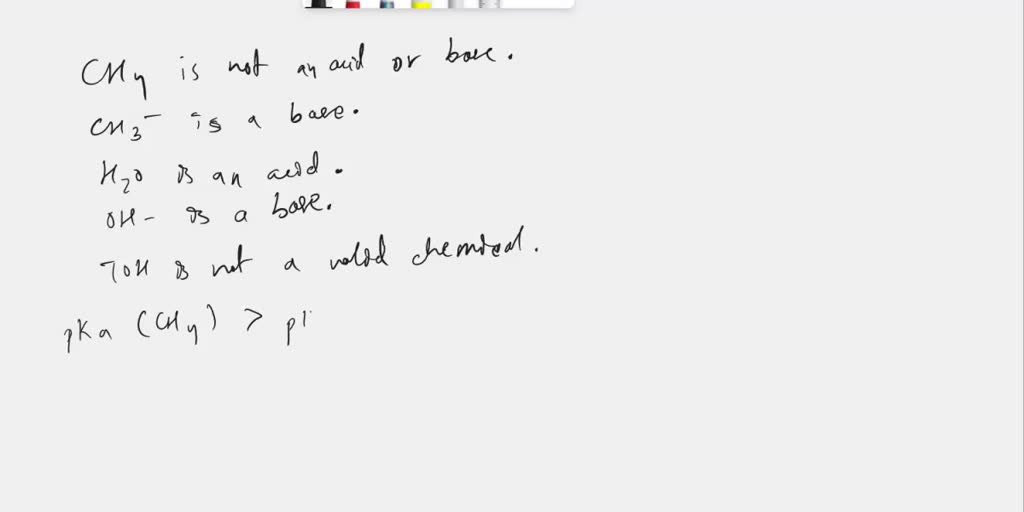 CH4 is not an acid or base.
CH3- is a base.
H2O is an acid.
OH- is a base.
TOH is not a valid chemical.
pKa (CH4) > pK